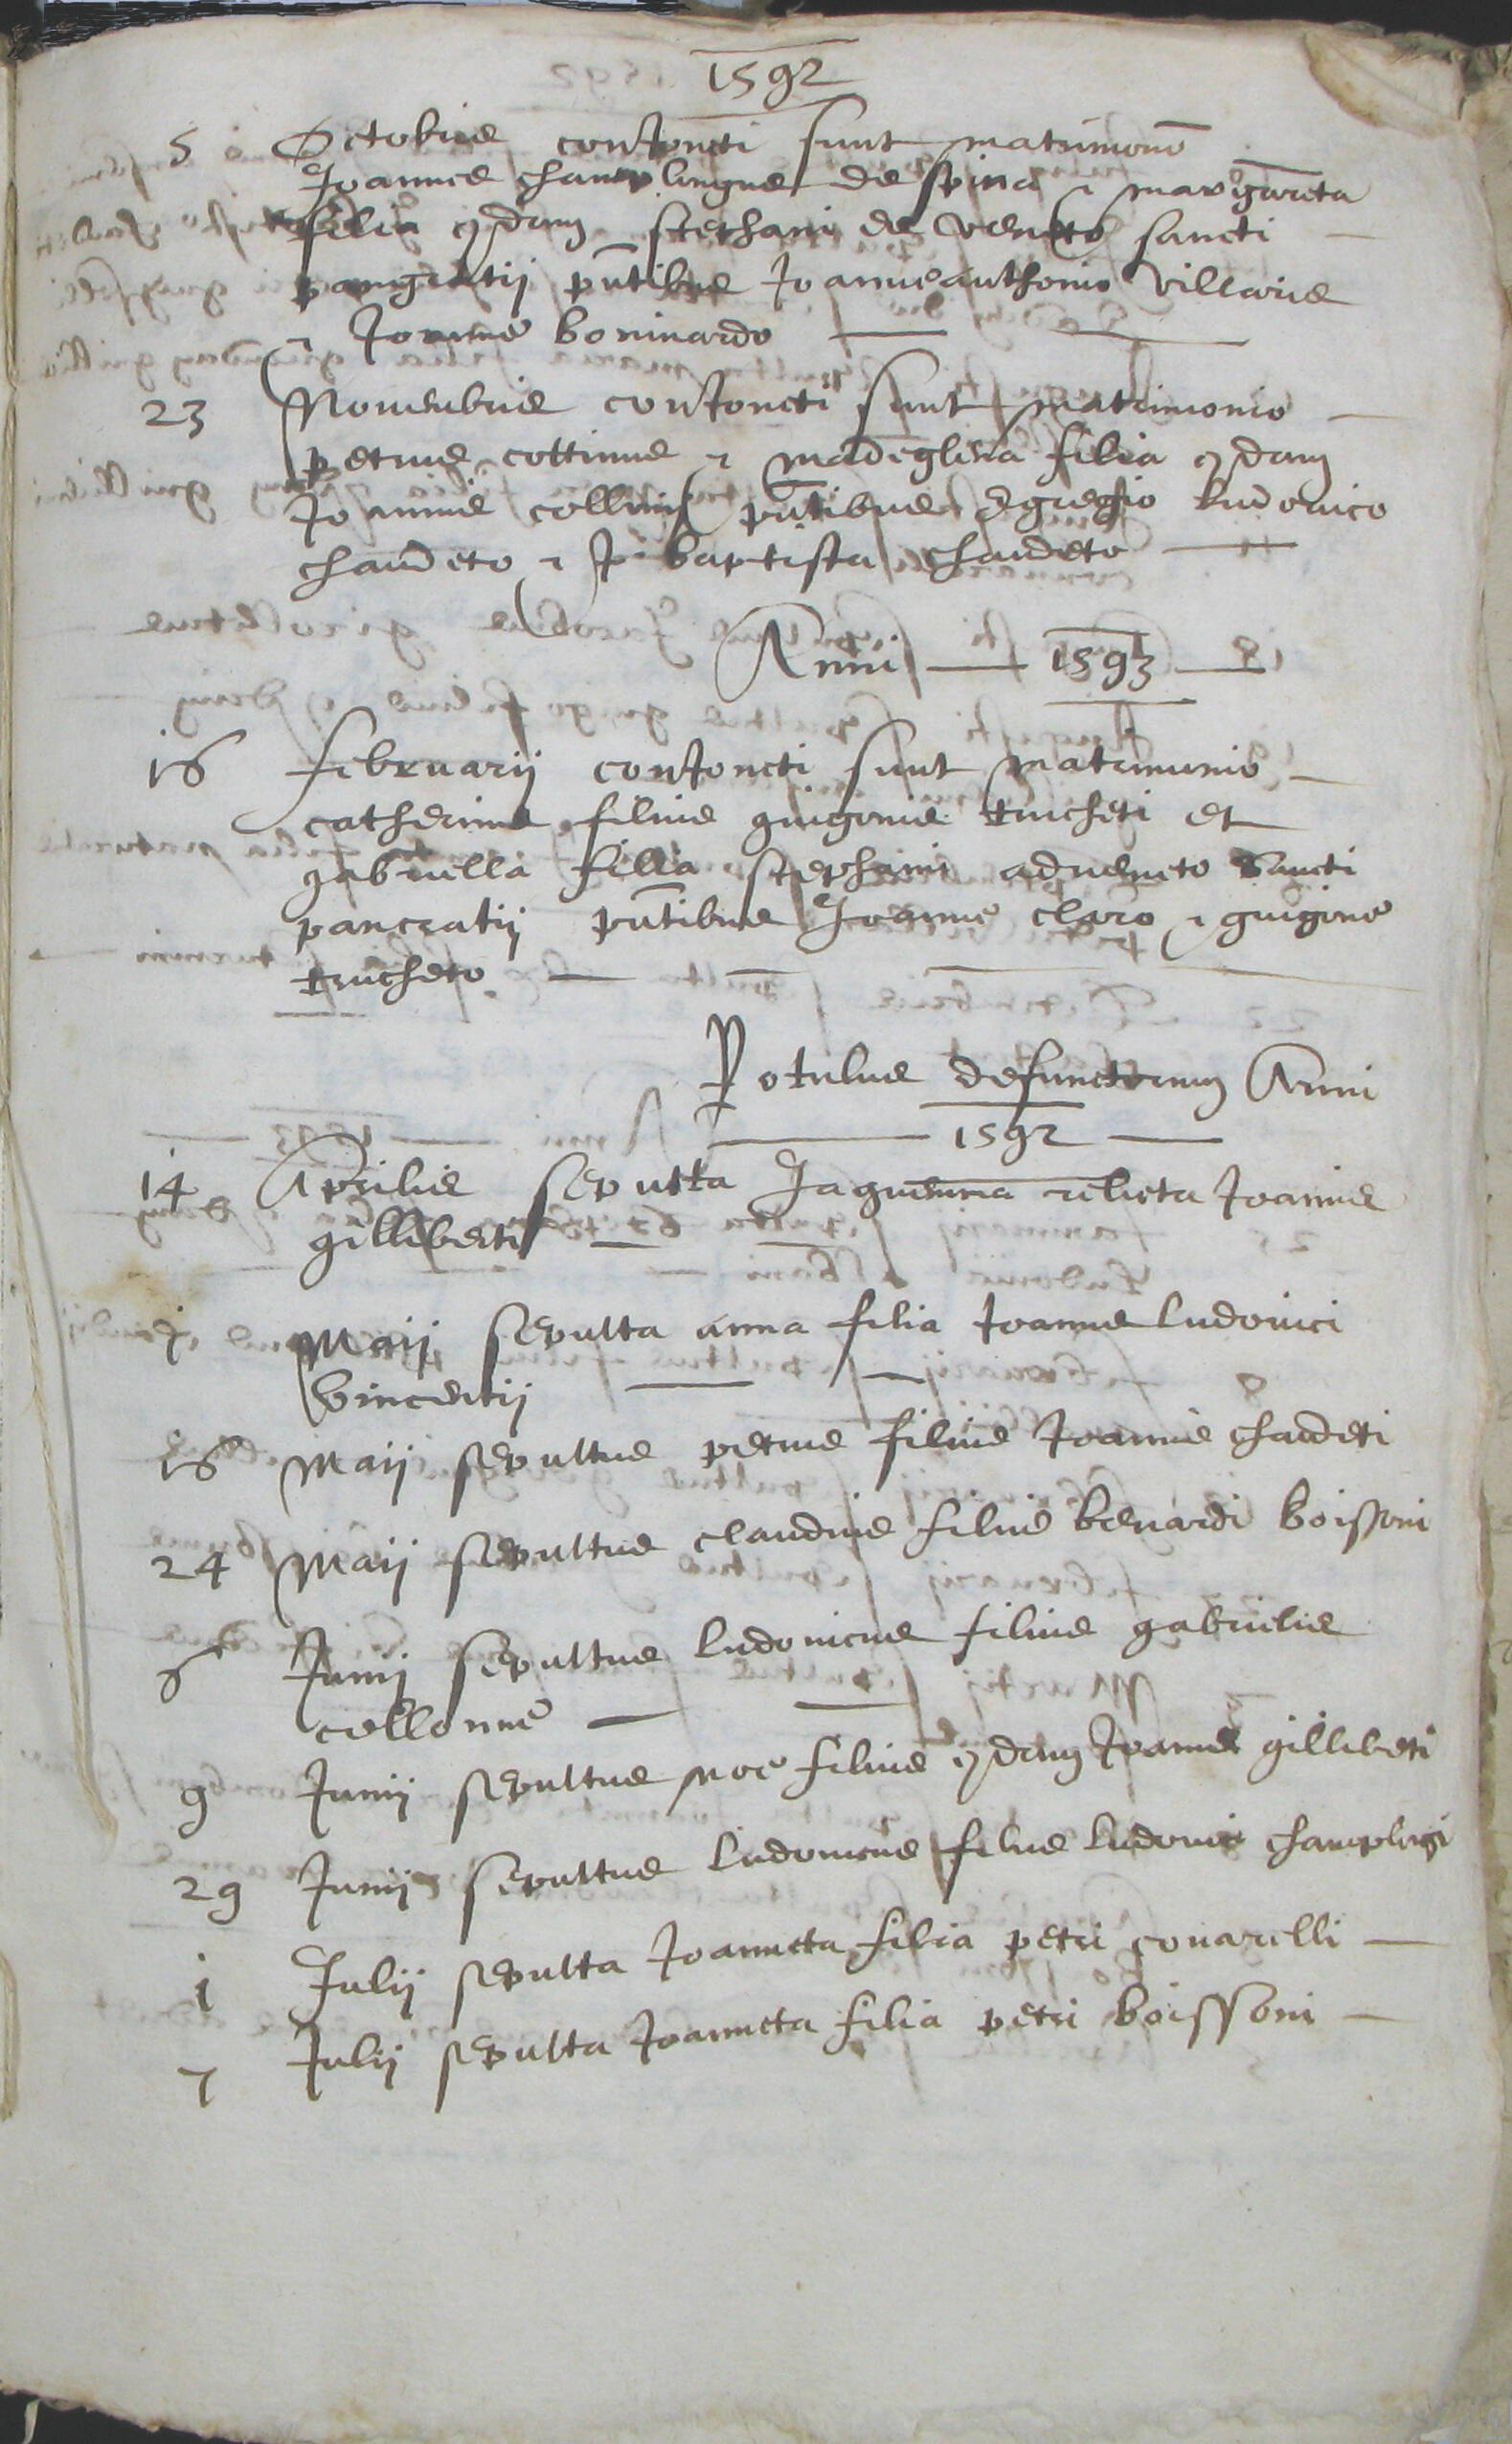 1592
5 Octobris conJoncti sunt matrimonō
Joannes champlingus de spina & margareta
filia qdam stephani de veneto sancti
pangratij pn̄tibus Joanneanthonio villaris
& Joanne boninardo
23 Novembris conJoncti sunt matrimonio
petrus cottinus & madeglena filia qdam
Joannis collini pn̄tibus Egregio ludovico
chaudeto & Jo baptista chaudeto
Anni 1593
16 februarij conJoncti sunt matrimonio
catherinus filius guigonis trucheti et
gabriella filia stephani advento sancti
pancratij pn̄tibus Joanne claro & guigone
trucheto
Rotulus defunctorum Anni
1592
14 Aprilis sepulta Jaquemina relicta Joannis
gilliberti
i Maij sepulta anna filia Joannis ludovici
vincentij
16 Maij sepultus petrus filius Joannis chaudeti
24 Maij sepultus claudius filius benardi boissoni
6 Junij sepultus ludovicus filius gabrielis
collonne
9 Junij sepultus noe filius qdam Joannis gilliberti
29 Junij sepultus ludovicus filius ludovici champlingi
i Julij sepulta Joanneta filia petri covarelli
7 Julij sepulta Joanneta filia petri boissoni